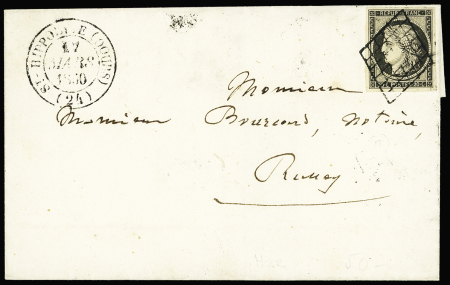 ST-HIPPOLYTE (DOUBS)
17
MARS
1850
(24)
REPUB. FRANC.
Monsieur
Monsieur Bourcond, notaire,